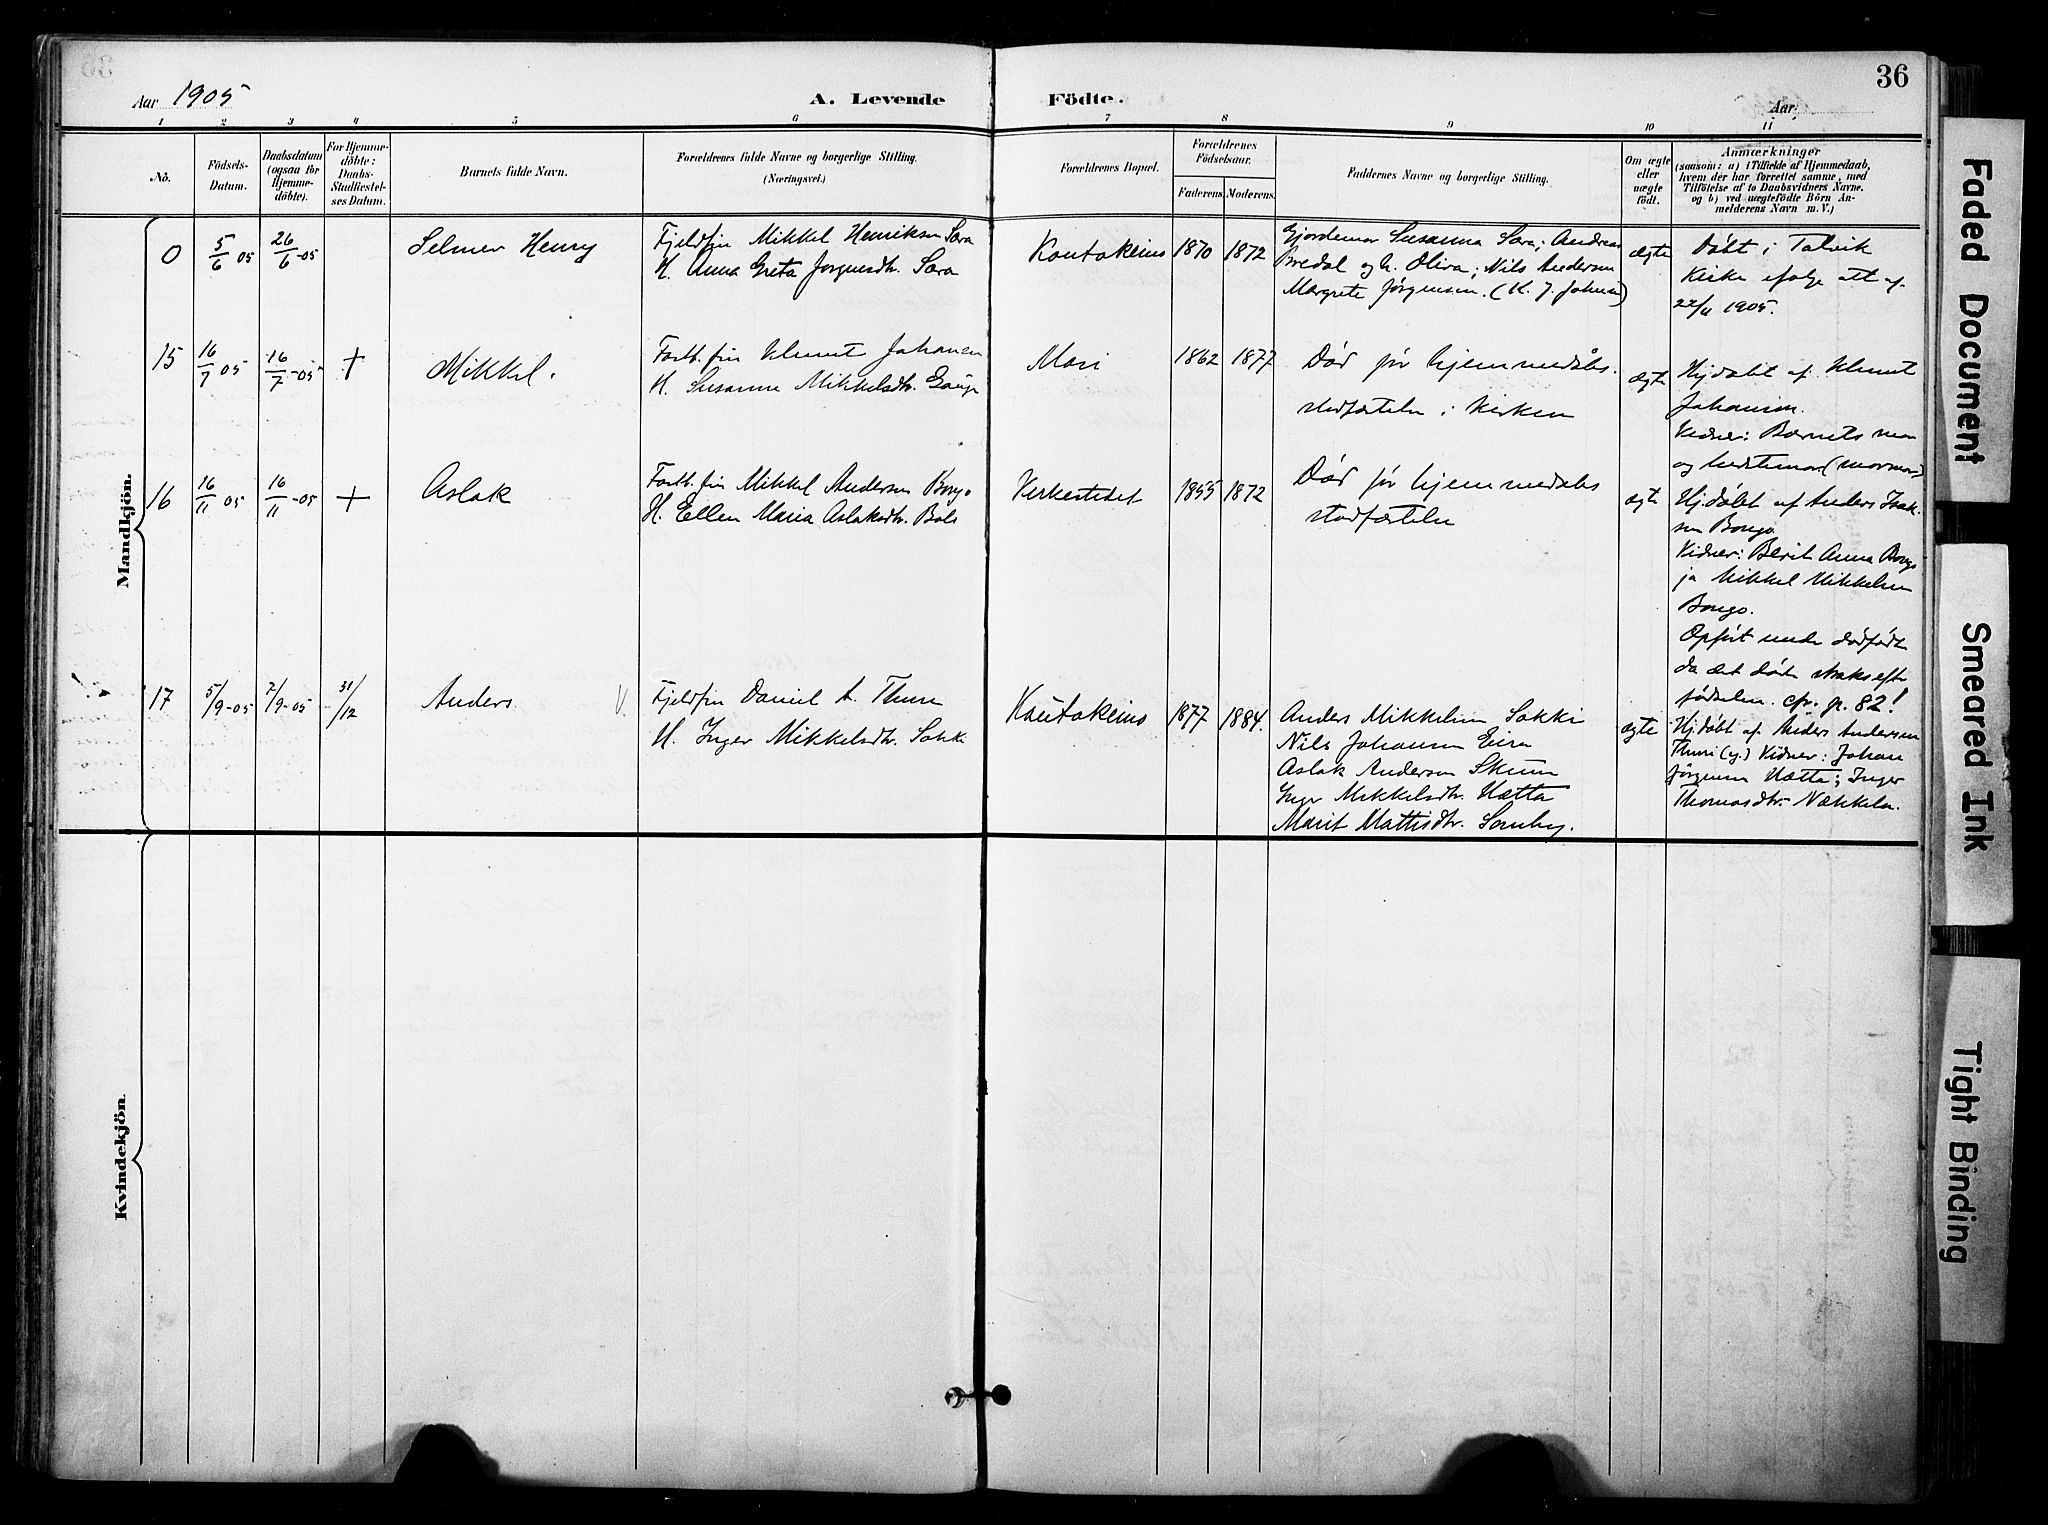 36
Aar 1905
A. Levende Födte.
Aar
1 2 3 4 5 6 7 8 9 10 11
No.
Födsels-
Datum.
Daabsdatum
(ogsaa for
Hjemme-
döbte).
For Hjemme-
döbte:
Daabs-
Stadfæstel-
ses Datum.
Barnets fulde Navn.
Forældrenes fulde Navne og borgerlige Stilling.
(Næringsvei.)
Forældrenes Bopæl.
Forældrenes
Födselsaar.
Faderens. Moderens.
Faddernes Navne og borgerlige Stilling.
Om ægte
eller
uægte
födt.
Anmærkninger
(saasom: a) i Tilfælde af Hjemmedaab,
hvem der har forrettet samme, med
Tilföielse af to Daabsvidners Navne.
og b) ved uægtefödte Börn An-
melderens Navn m. V.)
Mandkjön.
0
5/6 05
26/6-05
Selmer Henry
Fjeldfin Mikkel Henriksen Sara
H. Anna Greta Jørgensdtr. Sara
Koutokeino
1870
1872
Gjordemor Susanna Sara; Andreas
Bredal og h. Oliva; Nils Andersen
Margrete Jørgensen. (K. J. Johnsen)
ægte
Døbt i Talvik
Kirke ifølge att af
22/11 1905.
15
16/7 05
16/7-05
+
Mikkel.
Fastb. fin Klemet Johansen
H. Susanne Mikkelsdtr. Gaup
Masi
1862
1877
Død før hjemmedåbs.
stadfæstelse i kirken
ægte
Hj.døbt af Klemet
Johansen.
Vidner: Barnets mor
og bedstemor (mormor)
16
16/11 05
16/11-05
+
Aslak
Fastb. fin Mikkel Andersen Bongo
H. Ellen Maria Aslaksdtr. Bals
Kirkestedet
1855
1872
Død før hjemmedåbs
stadfæstelse
ægte
Hj.døbt af Anders Isak-
sen Bongo
Vidner: Berit Anna Bongo
ja Mikkel Mikkelsen
Bongo.
Opført under dødfødt
da det døde straks efter
fødselen. cfr. p. 82!
17
5/9-05
7/9-05
31/12
Anders
V.
Fjeldfin Daniel A. Thuri
H. Inger Mikkelsdtr. Sokki
Koutokeino
1877
1884.
Anders Mikkelsen Sokki
Nils Johansen Eira
Aslak Andersen Skum
Inger Mikkelsdtr. Hætta
Marit Mattisdtr. Somby.
ægte
Hj.døbt af Anders Andersen
Thuri (y.) Vidner: Johan
Jørgensen Hætta; Inger
Thomasdtr. Nækkela.
Kvindekjön.
Faded Document
Smeared Ink
Tight Binding